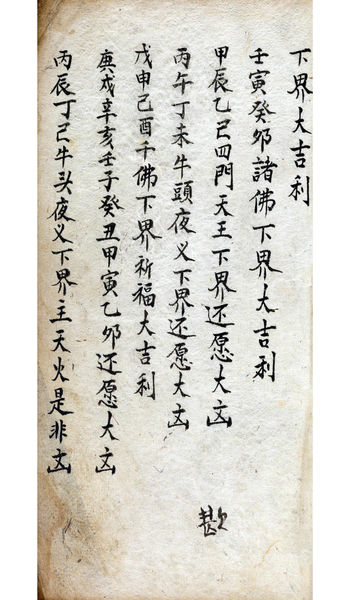 下界大吉利
壬寅癸夘諸佛下界大吉利
甲辰乙巳四門天王下界还愿大㐫
丙午丁未牛頭夜义下界还愿大㐫
戊申己酉千佛下界祈福大吉利
庚戌辛亥壬子癸丑甲寅乙夘还愿大㐫
丙辰丁己牛头夜义下界主天火是非㐫